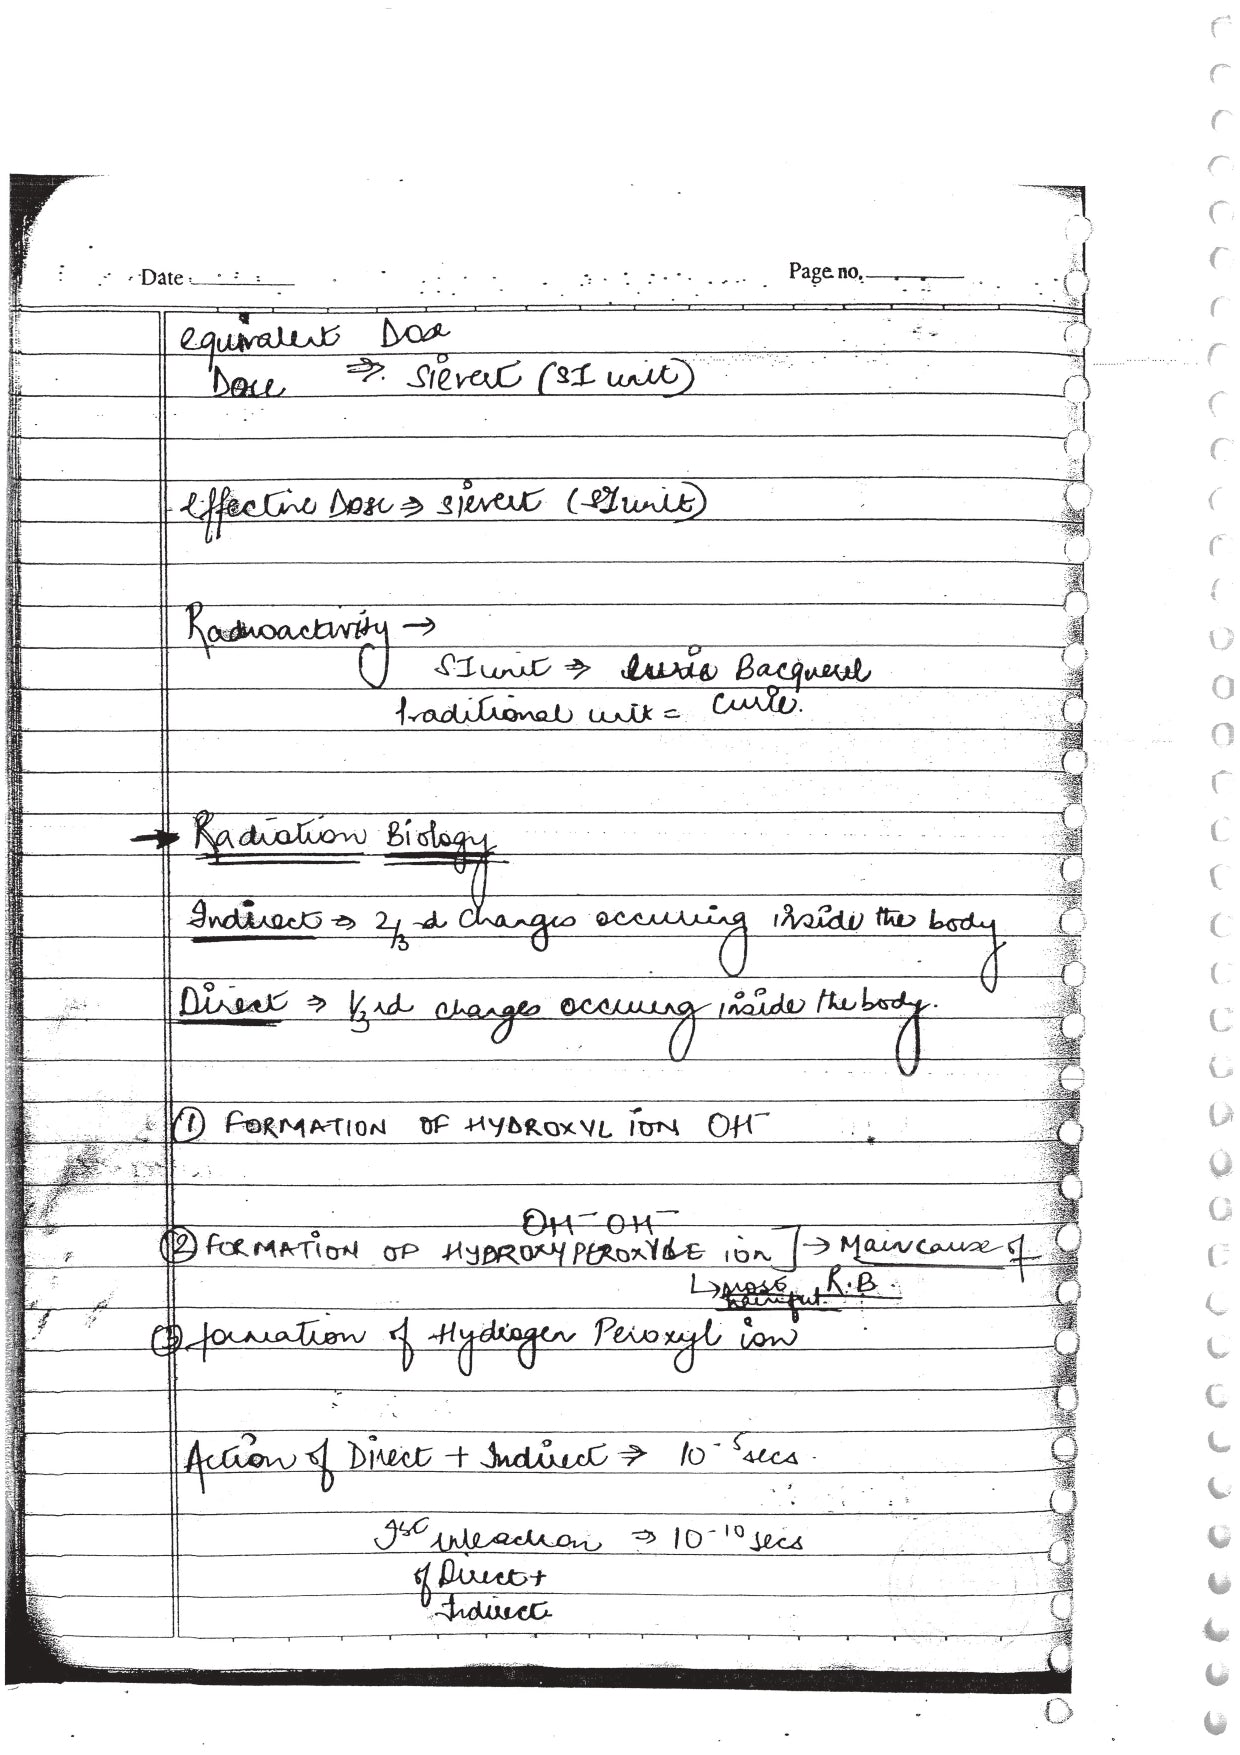 Date
Page no.
equivalent Dose
Dose ⇒ Sievert (SI unit)
Effective Dose ⇒ Sievert (SI unit)
Radioactivity →
SI unit ⇒ Bacquerel
traditional unit = Curie.
→ Radiation Biology
Indirect ⇒ 2/3 rd changes occuring inside the body
Direct ⇒ 1/3 rd changes occuring inside the body.
① FORMATION OF HYDROXYL ION OH⁻
OH⁻ OH⁻
② FORMATION OF HYDROXYPEROXYDE ion ] → Main cause of
↳ most R.B.
③ formation of Hydrogen Peroxyl ion
Action of Direct + Indirect ⇒ 10⁻⁵ secs.
Ist interaction ⇒ 10⁻¹⁰ secs
of Direct +
Indirect